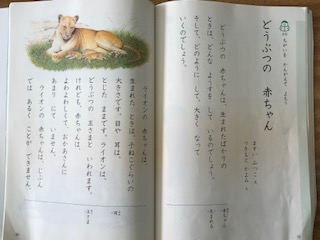 ちがいを かんがえて よもう
どうぶつの 赤ちゃん
ますい みつこ 文
どうぶつの 赤ちゃんは、生まれたばかりの
ときは、どんな ようすを して いるのでしょう。
そして、どのように して、大きく なって
いくのでしょう。
ライオンの 赤ちゃんは、
生まれた ときは、子ねこぐらいの
大きさです。目や 耳は、
とじた ままです。ライオンは、
どうぶつの 王さまと いわれます。
けれども、赤ちゃんは、
よわよわしくて、おかあさんに
あまり にて いません。
ライオンの 赤ちゃんは、じぶん
では あるく ことが できません。